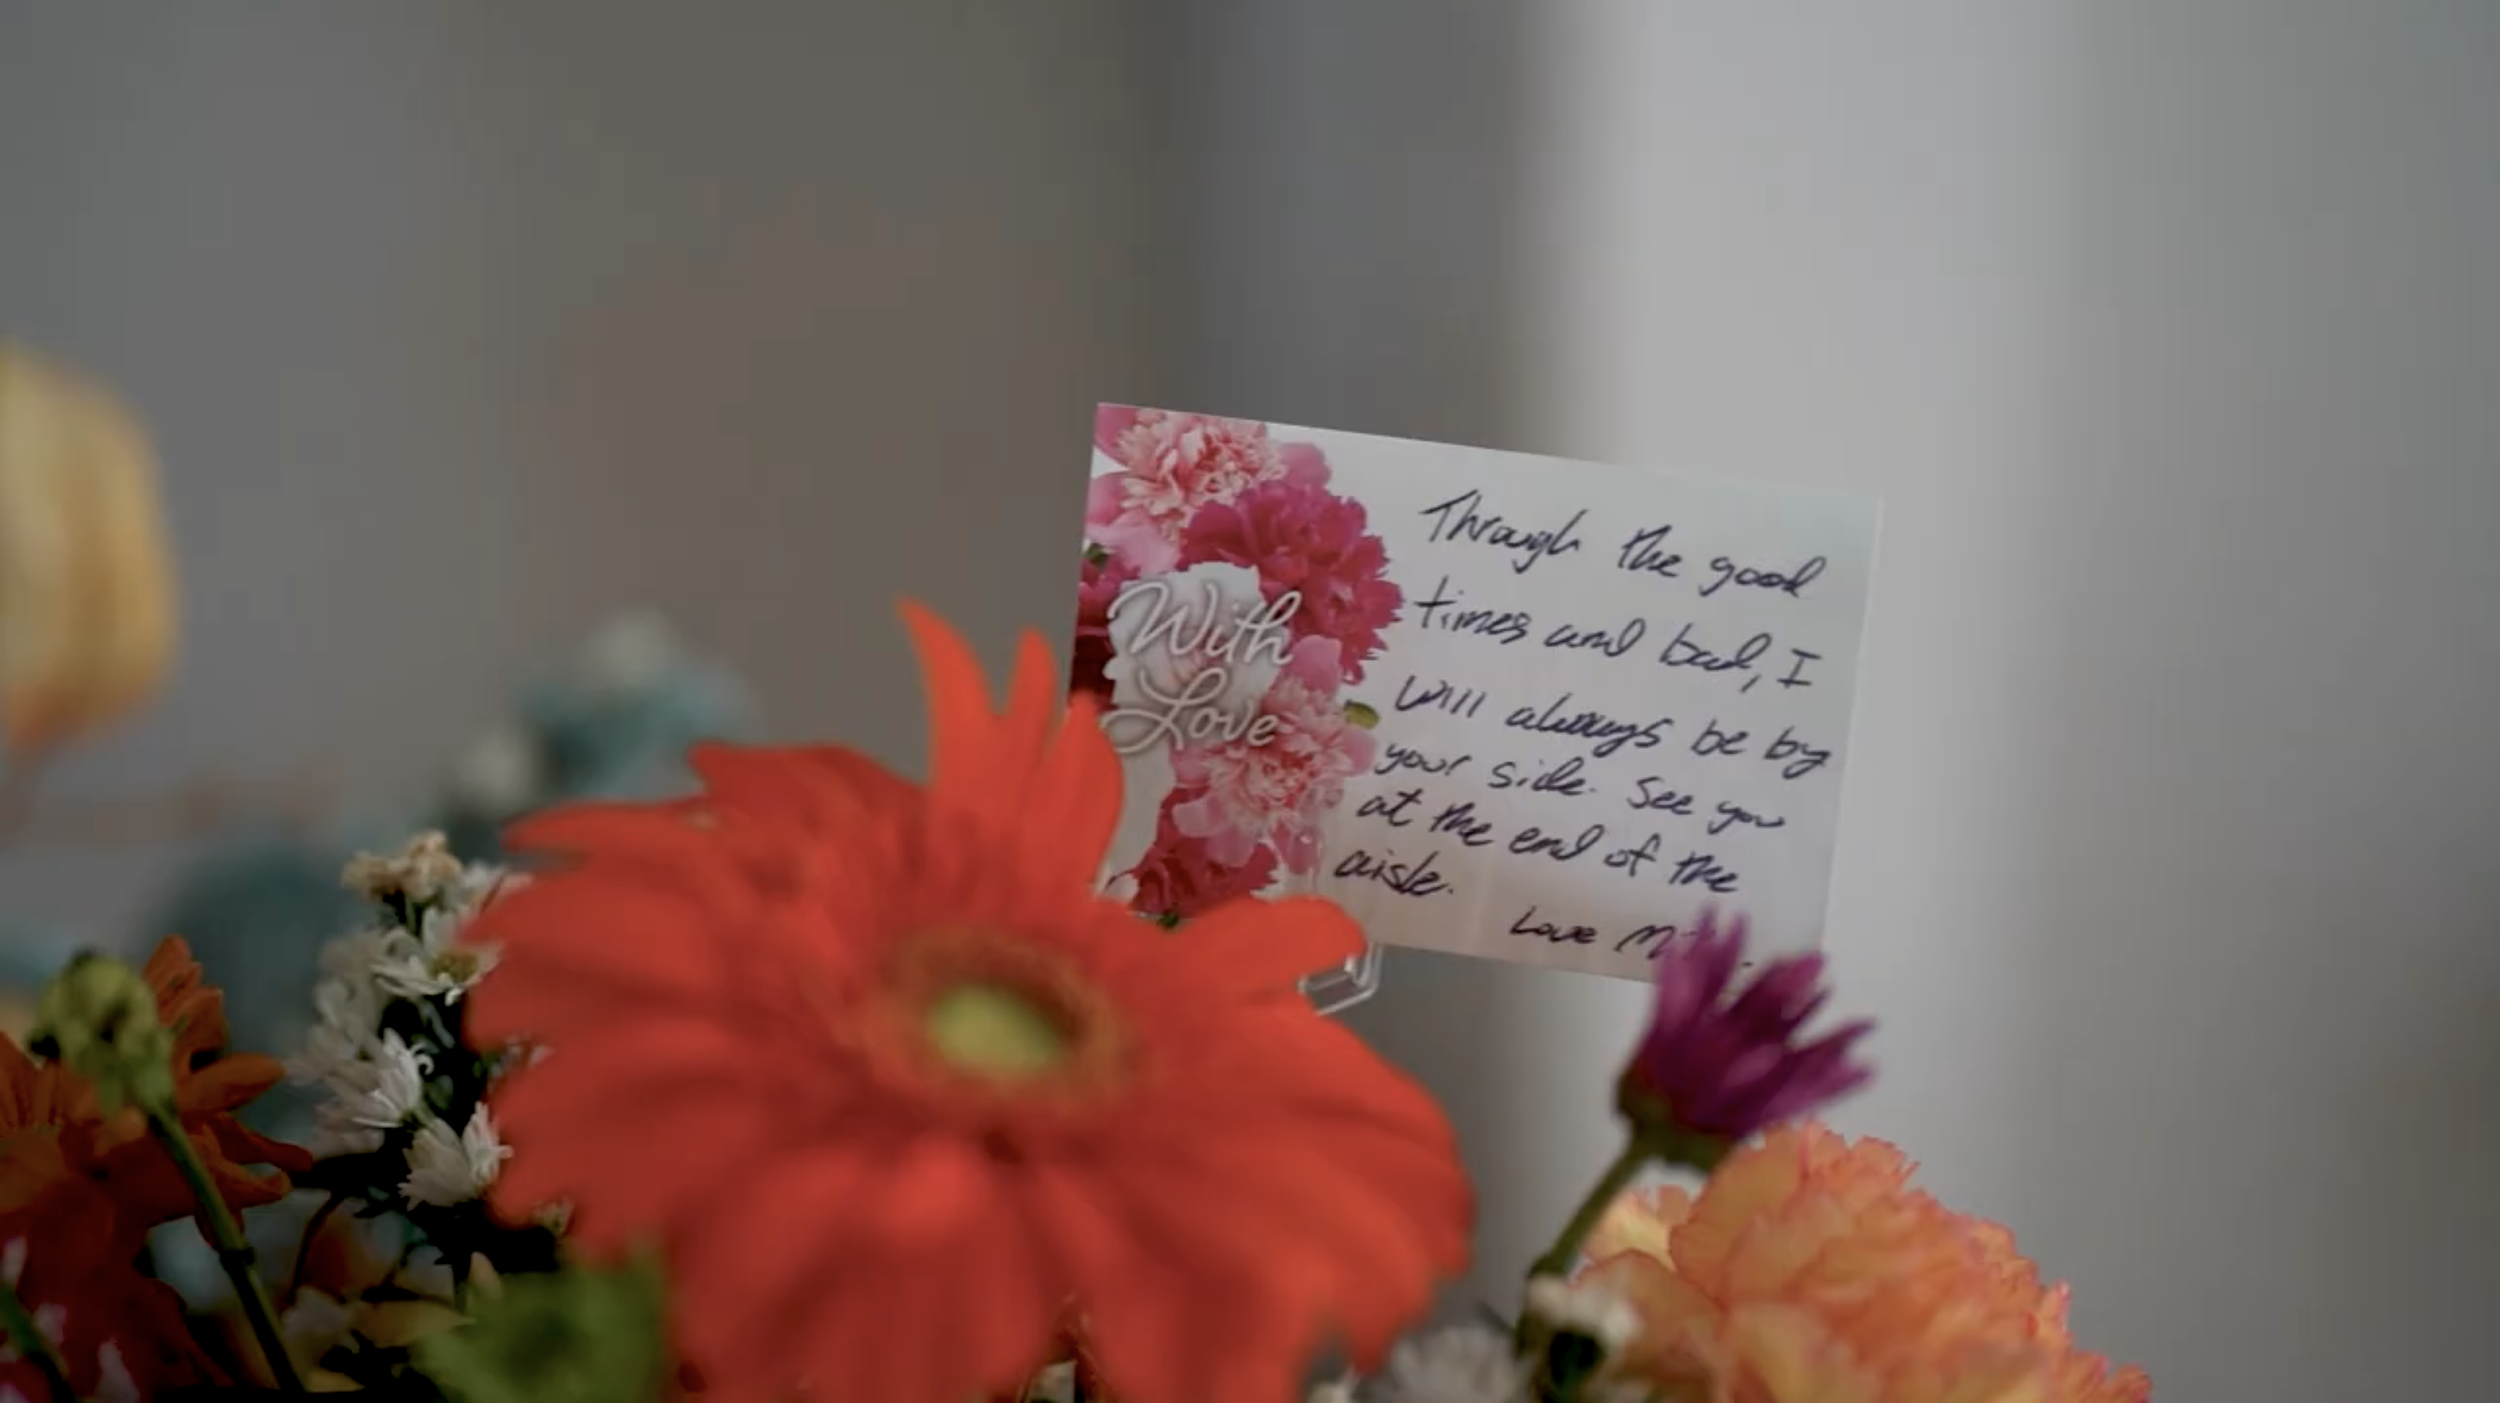 With
Love
Through the good
times and bad, I
will always be by
your side. See you
at the end of the
aisle.
Love